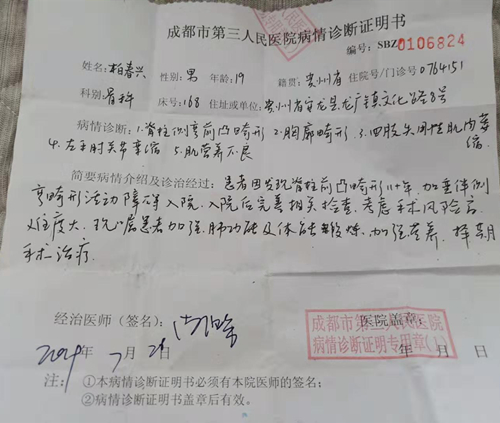 成都市第三人民医院病情诊断证明书
编号:SBZ0106824
姓名:柏春兴 性别:男 年龄:19 籍贯:贵州省 住院号/门诊号0764151
科别:骨科 床号:168 住址或单位:贵州省安龙县龙广镇文化路8号
病情诊断:1.脊柱侧弯前凸畸形 2.胸廓畸形 3.四肢失用性肌肉萎缩
4.左手肘关节挛缩 5.肌营养不良
简要病情介绍及诊治经过:患者因发现脊柱前凸畸形11+年,加重伴侧
弯畸形活动障碍入院,入院后完善相关检查,考虑手术风险高
难度大,现嘱患者加强肺功能及体能锻炼,加强营养,择期
手术治疗.
经治医师(签名): 医院盖章:
成都市第三人民医院
病情诊断证明专用章(1)
年 7月 日 年 月 日
注:①本病情诊断证明书必须有本院医师的签名;
②病情诊断证明书盖章后有效。